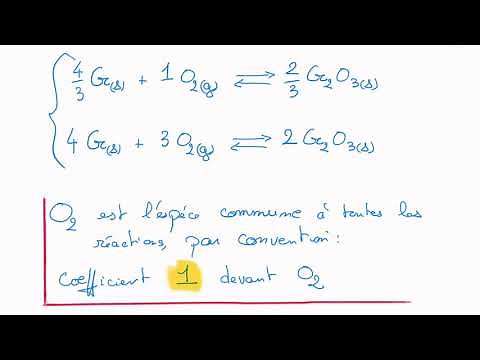 4/3 Cr(s) + 1 O₂(g) ⇌ 2/3 Cr₂O₃(s)
4 Cr(s) + 3 O₂(g) ⇌ 2 Cr₂O₃(s)
O₂ est l'espéce commune à toutes les
réactions, par convention :
coefficient 1 devant O₂